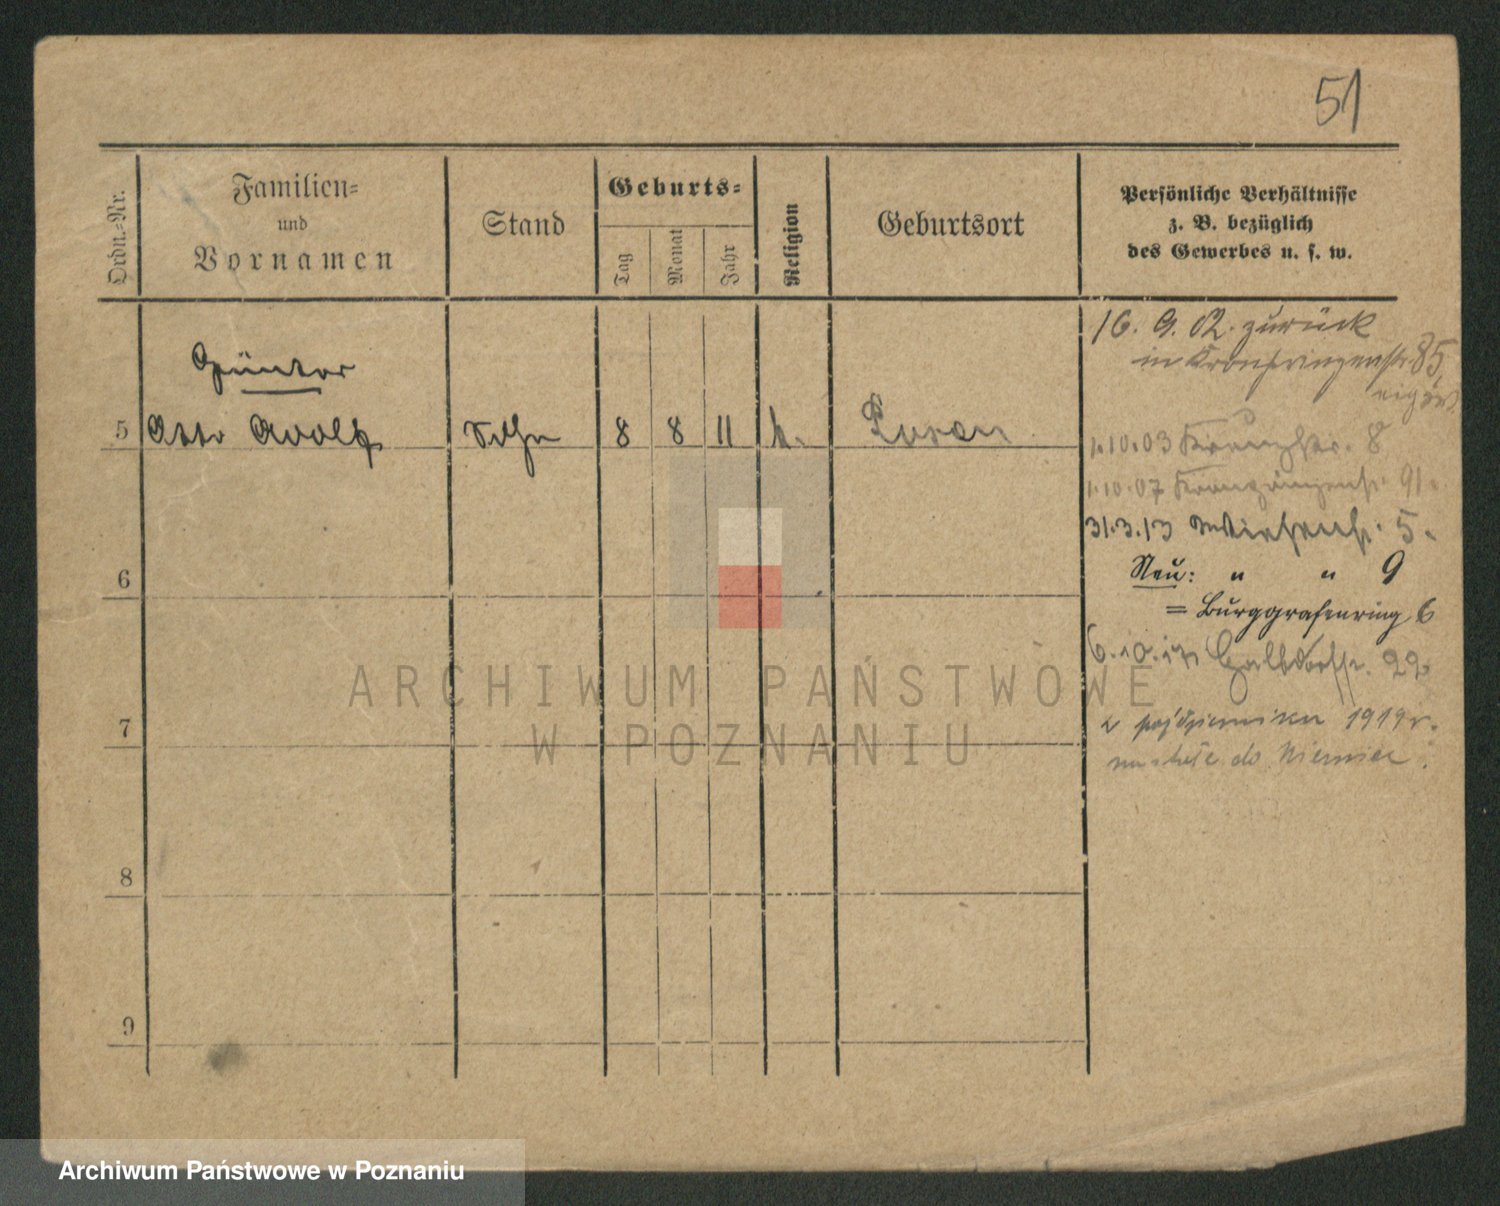 51
Ordn.-Nr.
Familien-
und
Vornamen
Stand
Geburts-
Tag
Monat
Jahr
Religion
Geburtsort
Persönliche Verhältnisse
z. B. bezüglich
des Gewerbes u. s. w.
Günter
5 Otto Adolf Sohn 8 8 11 k. Posen
16. 9. 02. zurück
in Kronprinzenstr. 85
1.10.03 8
1.10.07 Kronprinzenstr. 91.
31.3.13 5.
Neu: " " 9
= Burggrafenring 6
6.10.17 22
w październiku 1919 r.
na stałe do Niemiec.
6
7
8
9
ARCHIWUM PAŃSTWOWE
W POZNANIU
Archiwum Państwowe w Poznaniu